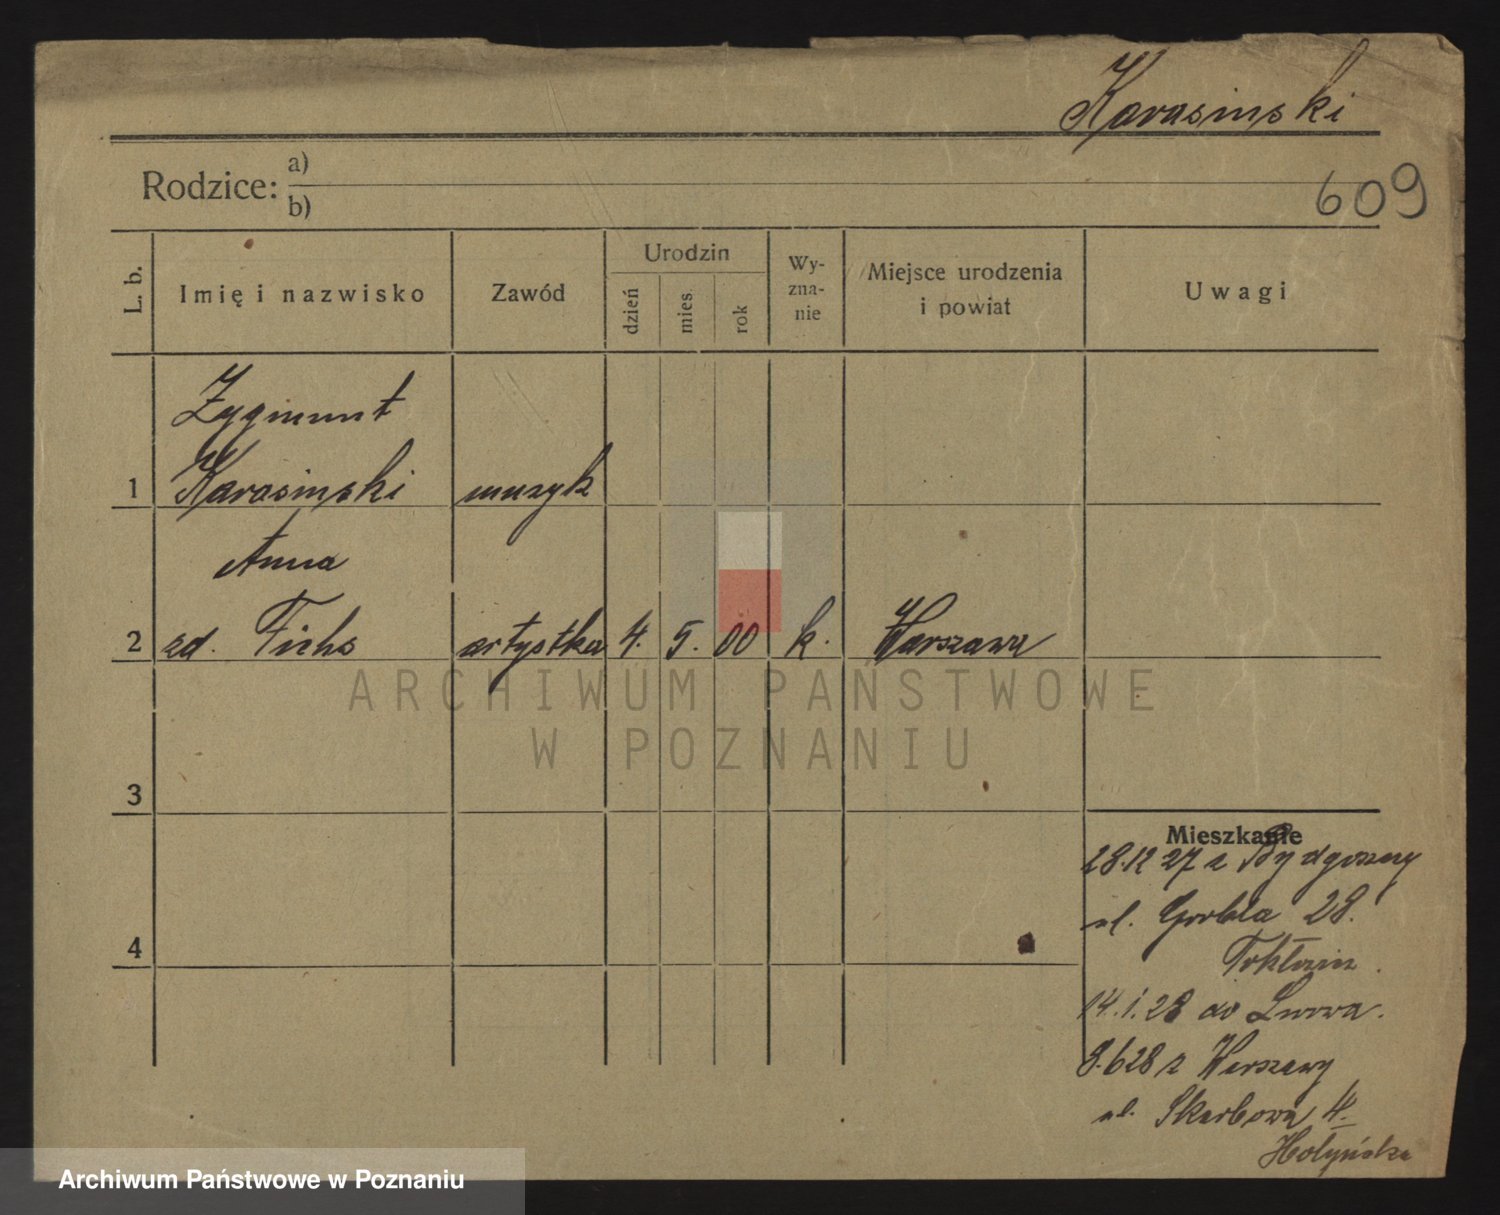 Karasinski
Rodzice: a)
b)
609
L. b.
Imię i nazwisko
Zawód
Urodzin
dzień
mies.
rok
Wy-
zna-
nie
Miejsce urodzenia
i powiat
Uwagi
Zygmunt
1 Karasinski muzyk
Anna
2 zd. Fichs artystka 4. 5. 00 k. Warszawa
3
4
Mieszkanie
28.12 27 z Bydgoszczy
ul. Grobla 28.
14.1.28 do Lwowa.
8.628 z Warszawy
ul. Skarbowa 4.
Hołyńska
ARCHIWUM PAŃSTWOWE
W POZNANIU
Archiwum Państwowe w Poznaniu